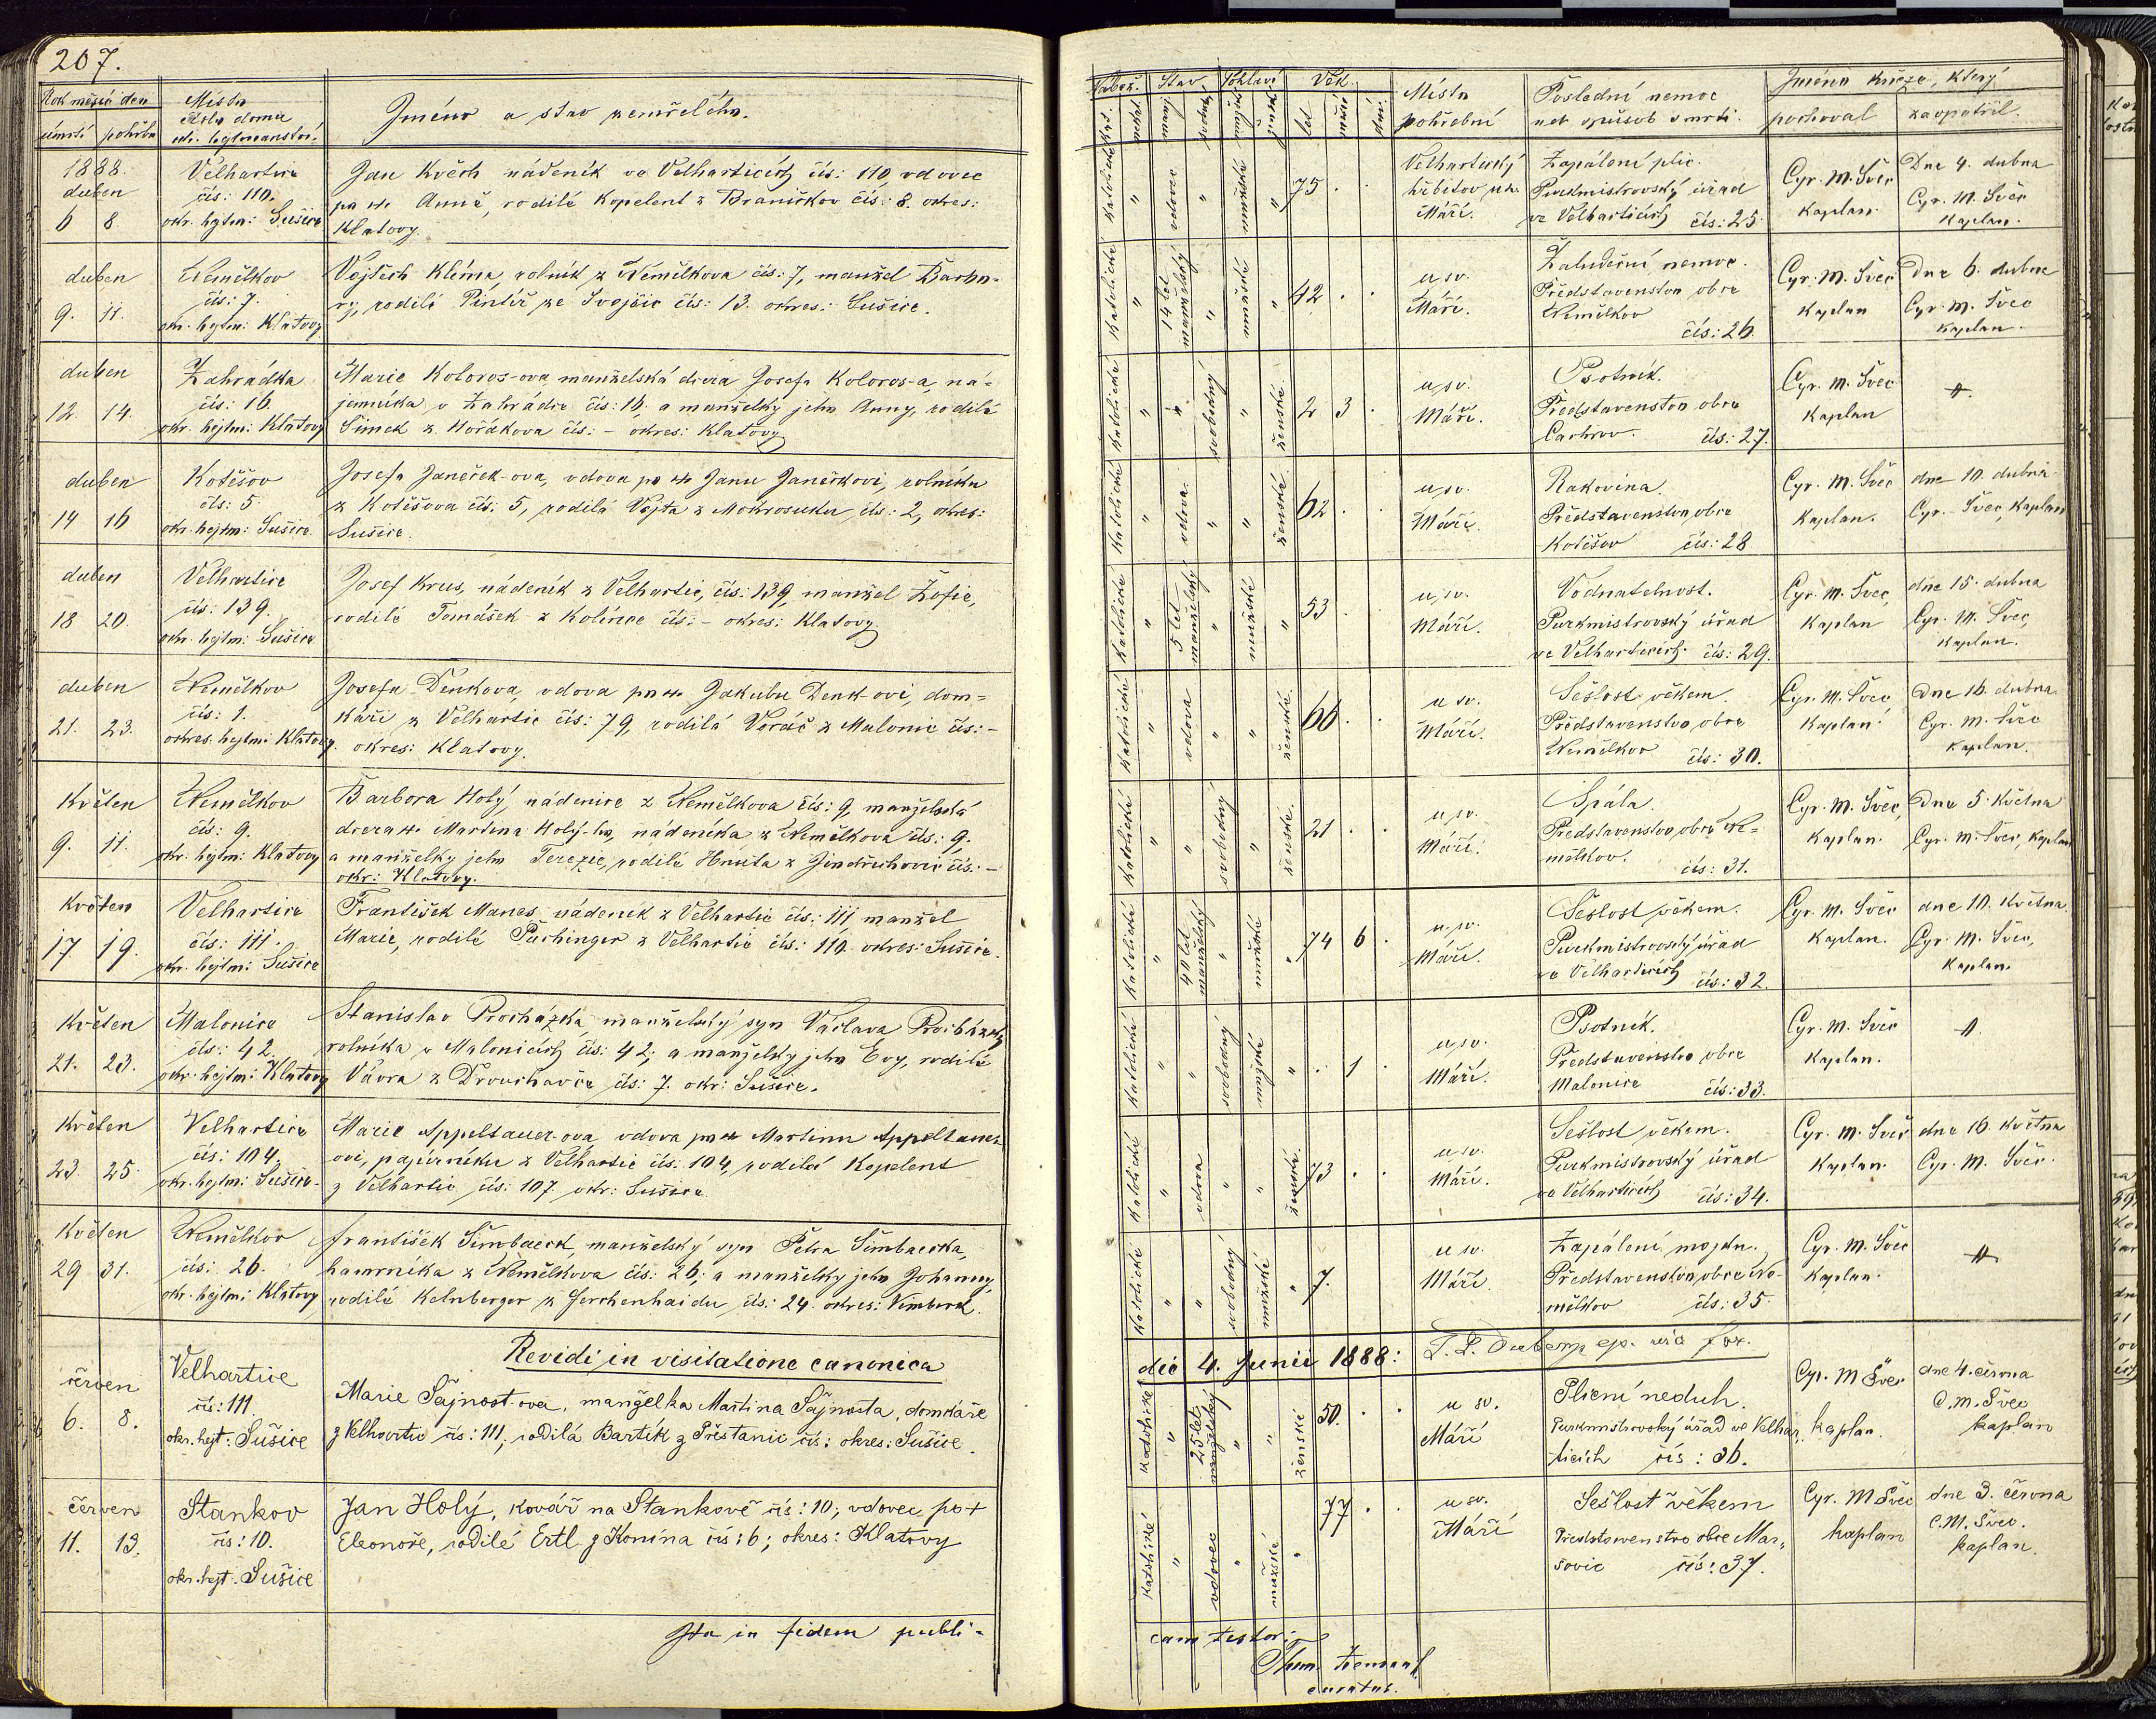 207.
Rok měsíc den
úmrtí pohřbu
Místo
číslo domu
okr. hejtmanství.
Jméno a stav zemřelého.
1888.
duben
6 8.
Velhartice
čís: 110.
okr. hejtm: Sušice
Jan Květh nádeník ve Velharticích čís: 110, vdovec
po ✝ Anně, rodilé Kopelent z Braníčkov čís: 8. okres:
Klatovy.
duben
9. 11.
Nemělkov
čís: 7.
okr. hejtm: Klatovy
Vojtěch Klíma, rolník z Nemělkova čís: 7, manžel Barbo-
ry, rodilé Pintíř ze Svojšic čís: 13. okres: Sušice.
duben
12. 14.
Zahrádka
čís: 16.
okr. hejtm: Klatovy
Marie Koloros-ova, manželská dcera Josefa Koloros-a, ná-
jemníka v Zahrádce čís: 16. a manželky jeho Anny, rodilé
Šimek z Hořákova čís: - okres: Klatovy
duben
14 16
Kotěšov
čís: 5.
okr. hejtm: Sušice.
Josefa Janeček-ova, vdova po ✝ Janu Janečkovi, rolníku
z Kotěšova čís. 5, rodilá Vojta z Mokrosuku, čís: 2, okres:
Sušice.
duben
18 20.
Velhartice
čís: 139.
okr. hejtm: Sušice
Josef Krus, nádeník z Velhartic, čís: 139, manžel Žofie,
rodilé Tomášek z Kolínce čís: - okres: Klatovy.
duben
21. 23.
Nemělkov
čís: 1.
okres. hejtm: Klatovy.
Josefa Denkova, vdova po ✝ Jakubu Denk-ovi, dom-
káři z Velhartic čís: 79, rodilá Voráč z Malonic čís: -
okres: Klatovy.
Květen
9. 11.
Nemělkov
čís: 9.
okr. hejtm: Klatovy
Barbora Holý, nádenice z Nemělkova čís: 9, manželská
dcera ✝ Martina Holý-ho, nádeníka z Nemělkova čís: 9.
a manželky jeho Terezie, rodilé Hnuta z Jindřichovic čís: -
okr: Klatovy.
Květen
17. 19.
Velhartice
čís: 111.
okr. hejtm: Sušice
František Manes, nádeník z Velhartic čís: 111, manžel
Marie, rodilé Puchinger z Velhartic čís: 110. okres: Sušice.
Květen
21. 23.
Malonice
čís: 42.
okr. hejtm: Klatovy
Stanislav Procházka, manželský syn Václava Procházky,
rolníka v Malonicích čís: 42; a manželky jeho Evy, rodilé
Vávra z Drouhavče čís: 7. okr: Sušice.
Květen
23. 25.
Velhartice
čís: 104.
okr. hejtm: Sušice.
Marie Appeltauer-ova, vdova po ✝ Martinu Appeltauer-
ovi, papírníku z Velhartic čís: 104, rodilá Kopelent
z Velhartic čís: 107. okr: Sušice
Květen
29 31.
Nemělkov
čís: 26.
okr. hejtm: Klatovy
František Šimbaerk, manželský syn Petra Šimbaerka,
hamrníka z Nemělkova čís: 26; a manželky jeho Johanny,
rodilé Kelnberger z Ferchenhaidu čís: 24. okres: Vimberk.
Revidi in visitatione canonica
červen
6. 8.
Velhartice
čís: 111.
okr. hejt: Sušice
Marie Šajnost-ova, manželka Martina Šajnosta, domkáře
z Velhartic čís: 111; rodilá Bartík z Přestanic čís: okres: Sušice.
červen
11. 13.
Stankov
čís: 10.
okr. hejt: Sušice
Jan Holý, kovář na Stankově čís: 10; vdovec po ✝
Eleonoře, rodilé Ertl z Konína čís: 6; okres: Klatovy
Ita in fidem publi-
Nábož. Stav. Pohlaví Věk.
let měs. dní
Místo
pohřební
Poslední nemoc
neb způsob smrti.
Jméno kněze, který
pochoval zaopatřil.
katolické " vdovec " mužské " 75 . .
Velhartický
hřbitov u sv.
Máří.
Zapálení plic.
Purkmistrovský úřad
ve Velharticích čís: 25.
Cyr. M. Švec
kaplan.
Dne 4. dubna
Cyr. M. Švec
kaplan.
katolické " 14 let manželský " mužské " 42 . .
u sv.
Máří.
Žaludeční nemoc.
Představenstvo obce
Nemělkov
čís: 26.
Cyr. M. Švec
kaplan
Dne 6. dubna
Cyr. M. Švec
kaplan.
katolické " " svobodný " ženské. 2 3 .
u sv.
Máří.
Psotník.
Představenstvo obce
Čachrov. čís: 27.
Cyr. M. Švec
kaplan
katolické " vdova. " " ženské 62 . .
u sv.
Máří.
Rakovina.
Představenstvo obce
Kotěšov čís: 28
Cyr. M. Švec
kaplan.
dne 10. dubna
Cyr. Švec, kaplan
katolické " 5 let manželský " mužské " 53 . .
u sv.
Máří.
Vodnatelnost.
Purkmistrovský úřad
ve Velharticích. čís: 29.
Cyr. M. Švec,
kaplan
dne 15. dubna
Cyr. M. Švec,
kaplan.
katolické " vdova " " ženské. 66 . .
u sv.
Máří.
Sešlost věkem.
Představenstvo obce
Nemělkov čís: 30.
Cyr. M. Švec,
kaplan.
Dne 16. dubna.
Cyr. M. Švec
kaplan.
katolické " " svobodný " ženské. 21 . .
u sv.
Máří.
Spála.
Představenstvo obce Ne-
mělkov. čís: 31.
Cyr. M. Švec,
kaplan.
Dne 5. Května
Cyr. M. Švec, kaplan
katolické " 40 let manželský " mužské " 74 6 .
u sv.
Máří.
Sešlost věkem.
Purkmistrovský úřad
ve Velharticích čís: 32.
Cyr. M. Švec
kaplan.
dne 10. května.
Cyr. M. Švec,
kaplan.
katolické " " svobodný mužské " . 1 .
u sv.
Máří.
Psotník.
Představenstvo obce
Malonice čís: 33.
Cyr. M. Švec
kaplan.
katolické " vdova " " ženské. 73 . .
u sv.
Máří.
Sešlost věkem.
Purkmistrovský úřad
ve Velharticích čís: 34.
Cyr. M. Švec
kaplan.
dne 16. května
Cyr. M. Švec.
katolické " " svobodný mužské " 7.
u sv.
Máří.
Zapálení mozku.
Představenstvo obce Ne-
mělkov čís: 35.
Cyr. M. Švec
kaplan.
die 4. Junii 1888:
katolické " 25 let manželský " " ženské 50. . .
u sv.
Máří
Plicní neduh.
Purkmistrovský úřad ve Velhar-
ticích čís: 36.
Cyr. M Švec
kaplan.
dne 4. června
C. M. Švec
kaplan
katolické " vdovec " mužské " 77 . .
u sv.
Máří
Sešlost věkem
Představenstvo obce Mar-
šovic čís: 37.
Cyr. M Švec
kaplan
dne 3. června
C. M. Švec.
kaplan.
cam testor:
curatus.